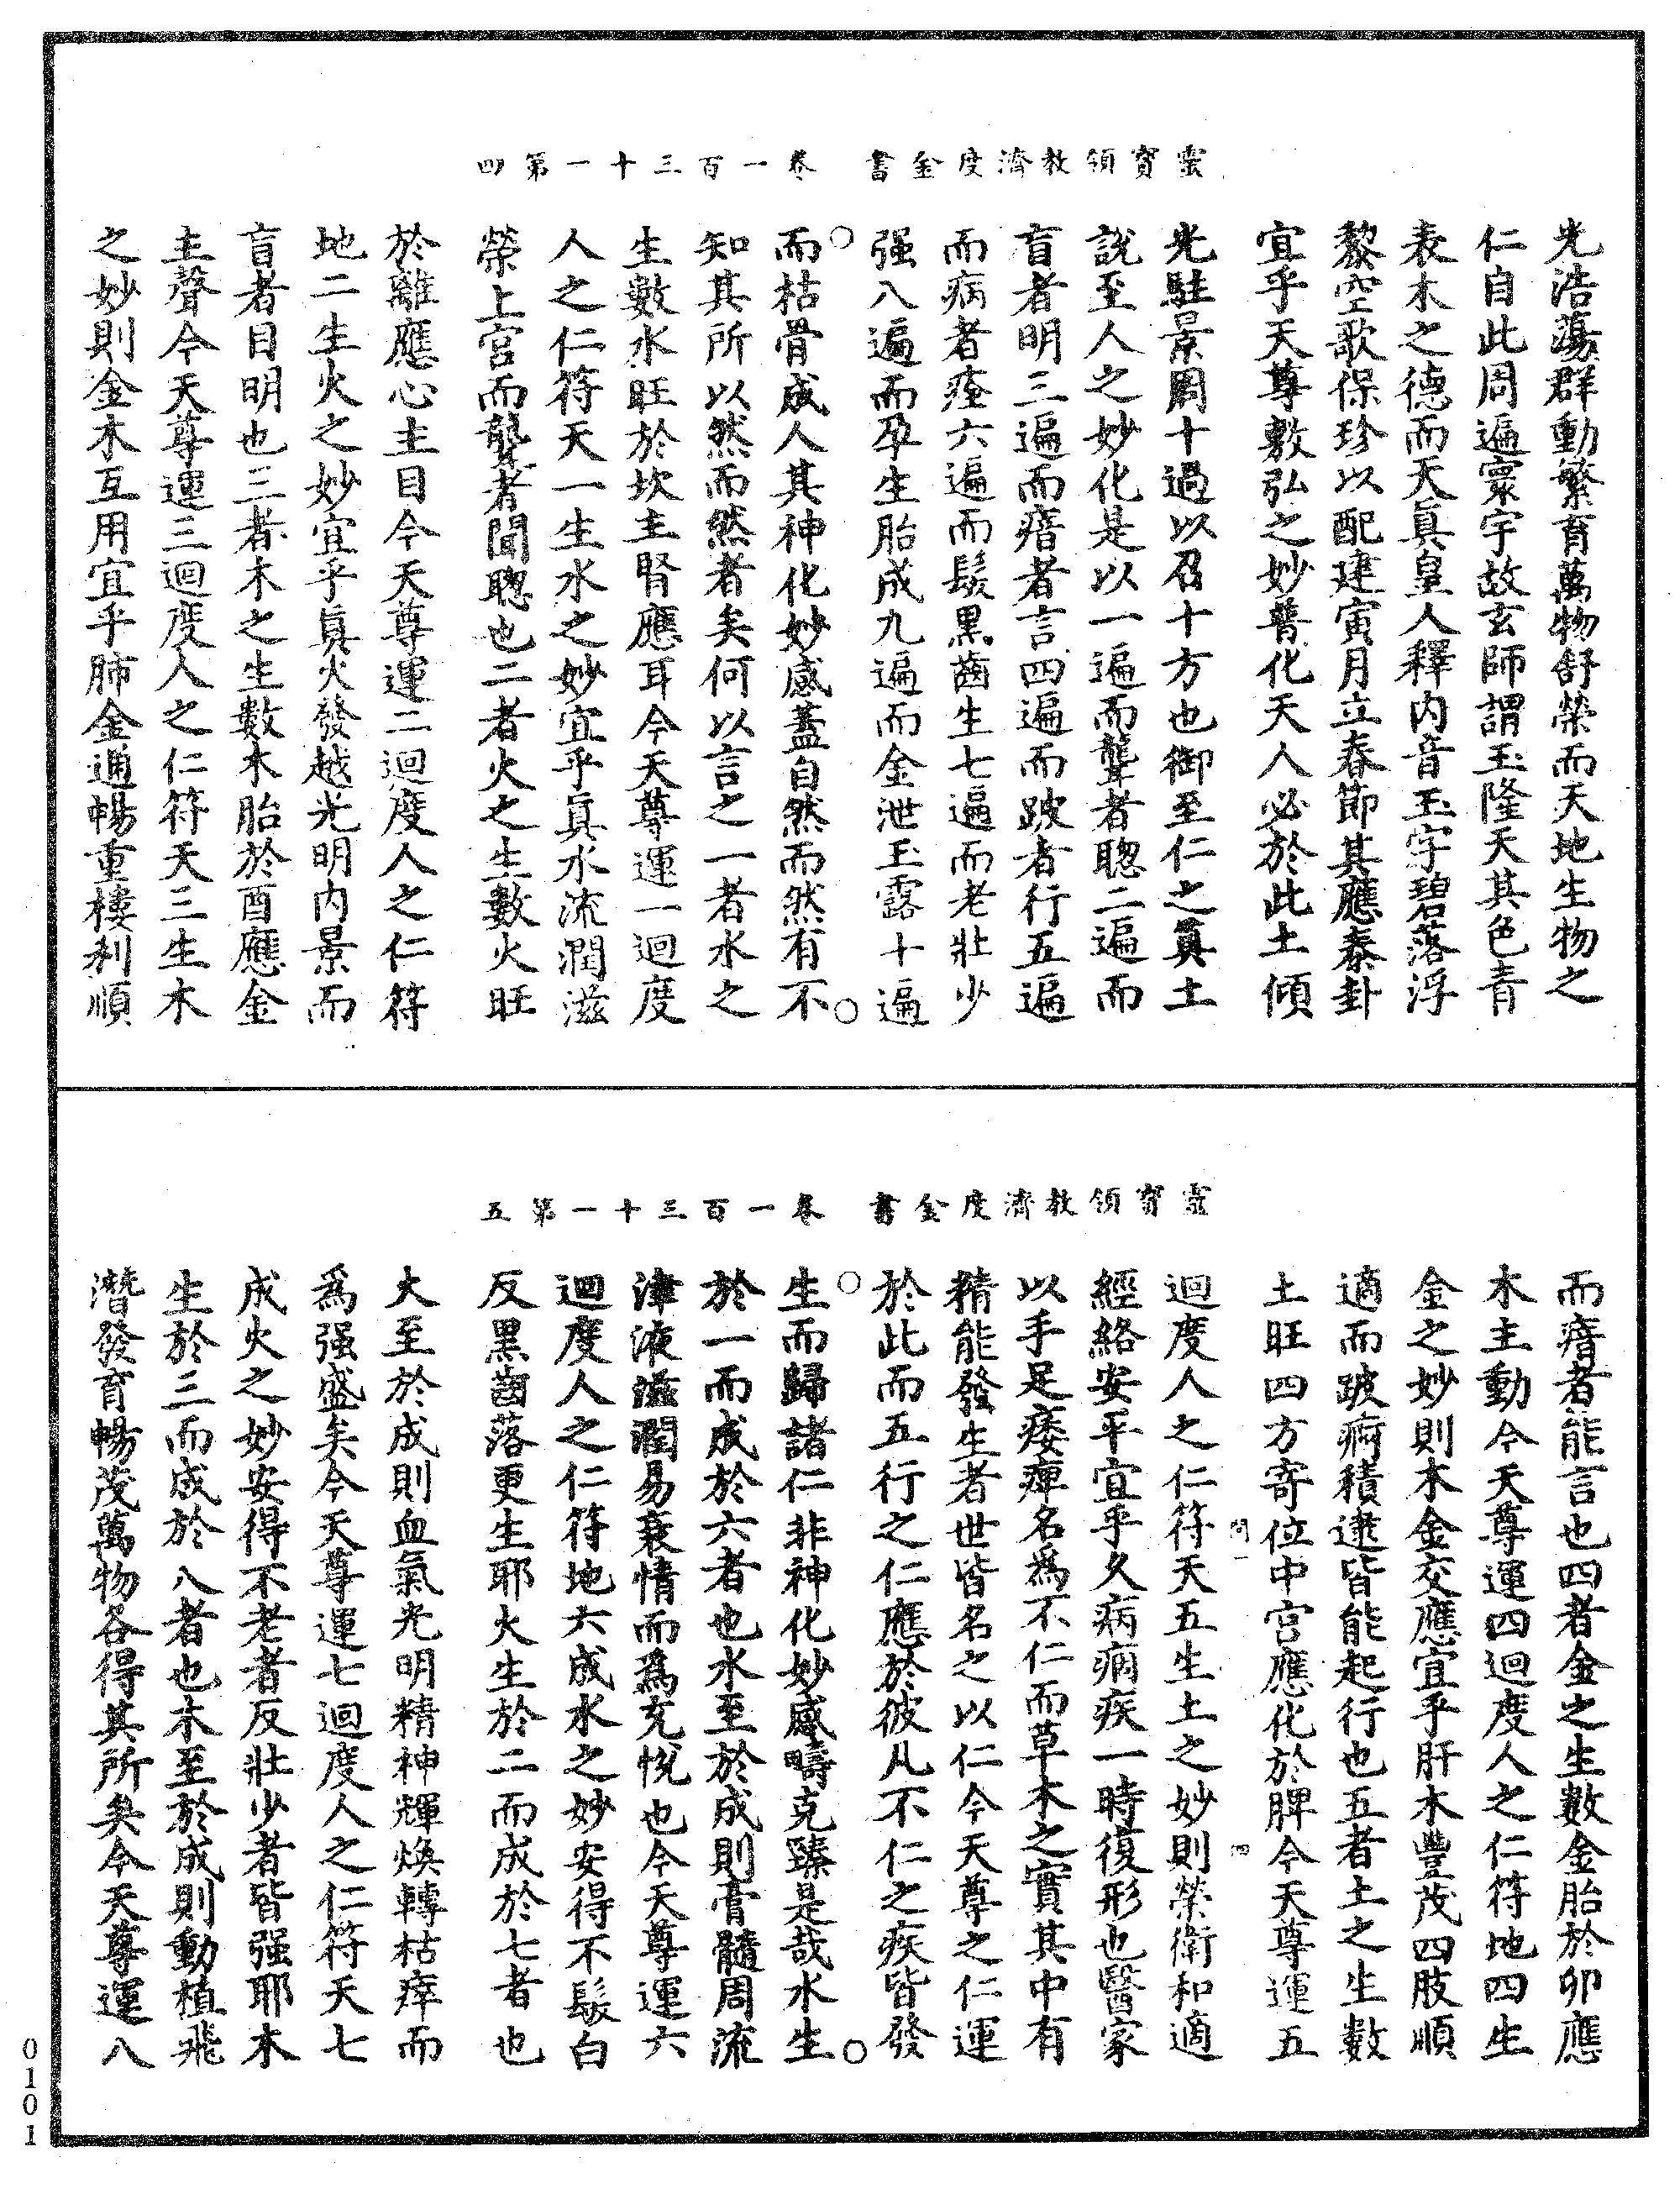 靈寶領教濟度金書　卷一百三十一第四
光浩蕩群動繁育萬物舒榮而天地生物之
仁自此周遍寰宇故玄師謂玉隆天其色青
表木之德而天真皇人釋內音玉字碧落浮
黎空歌保珍以配建寅月立春節其應泰卦
宜乎天尊敷弘之妙普化天人必於此土傾
光駐景周十過以召十方也御至仁之真土
說至人之妙化是以一遍而聾者聰二遍而
盲者明三遍而瘖者言四遍而跛者行五遍
而病者痊六遍而髮黑齒生七遍而老壯少
强八遍而孕生胎成九遍而金泄玉露十遍
而枯骨成人其神化妙感蓋自然而然有不
知其所以然而然者矣何以言之一者水之
生數水旺於坎主腎應耳今天尊運一迴度
人之仁符天一生水之妙宜乎真水流潤滋
榮上宮而聾者聞聰也二者火之生數火旺
於離應心主目今天尊運二迴度人之仁符
地二生火之妙宜乎真火發越光明內景而
盲者目明也三者木之生數木胎於酉應金
主聲今天尊運三迴度人之仁符天三生木
之妙則金木互用宜乎肺金通暢重樓利順
靈寶領教濟度金書　卷一百三十一第五
而瘖者能言也四者金之生數金胎於卯應
木主動今天尊運四迴度人之仁符地四生
金之妙則木金交應宜乎肝木豐茂四肢順
適而跛痾積逮皆能起行也五者土之生數
土旺四方寄位中宮應化於脾今天尊運五
迴度人之仁符天五生土之妙則榮衛和適
經絡安平宜乎久病痼疾一時復形也醫家
以手足痿痺名為不仁而草木之實其中有
精能發生者世皆名之以仁今天尊之仁運
於此而五行之仁應於彼凡不仁之疾皆發
生而歸諸仁非神化妙感疇克臻是哉水生
於一而成於六者也水至於成則膏髓周流
津液滋潤易衰情而為充悅也今天尊運六
迴度人之仁符地六成水之妙安得不髮白
反黑齒落更生耶火生於二而成於七者也
火至於成則血氣光明精神輝煥轉枯瘁而
為强盛矣今天尊運七迴度人之仁符天七
成火之妙安得不老者反壯少者皆强耶木
生於三而成於八者也木至於成則動植飛
潛發育暢茂萬物各得其所矣今天尊運八
0101